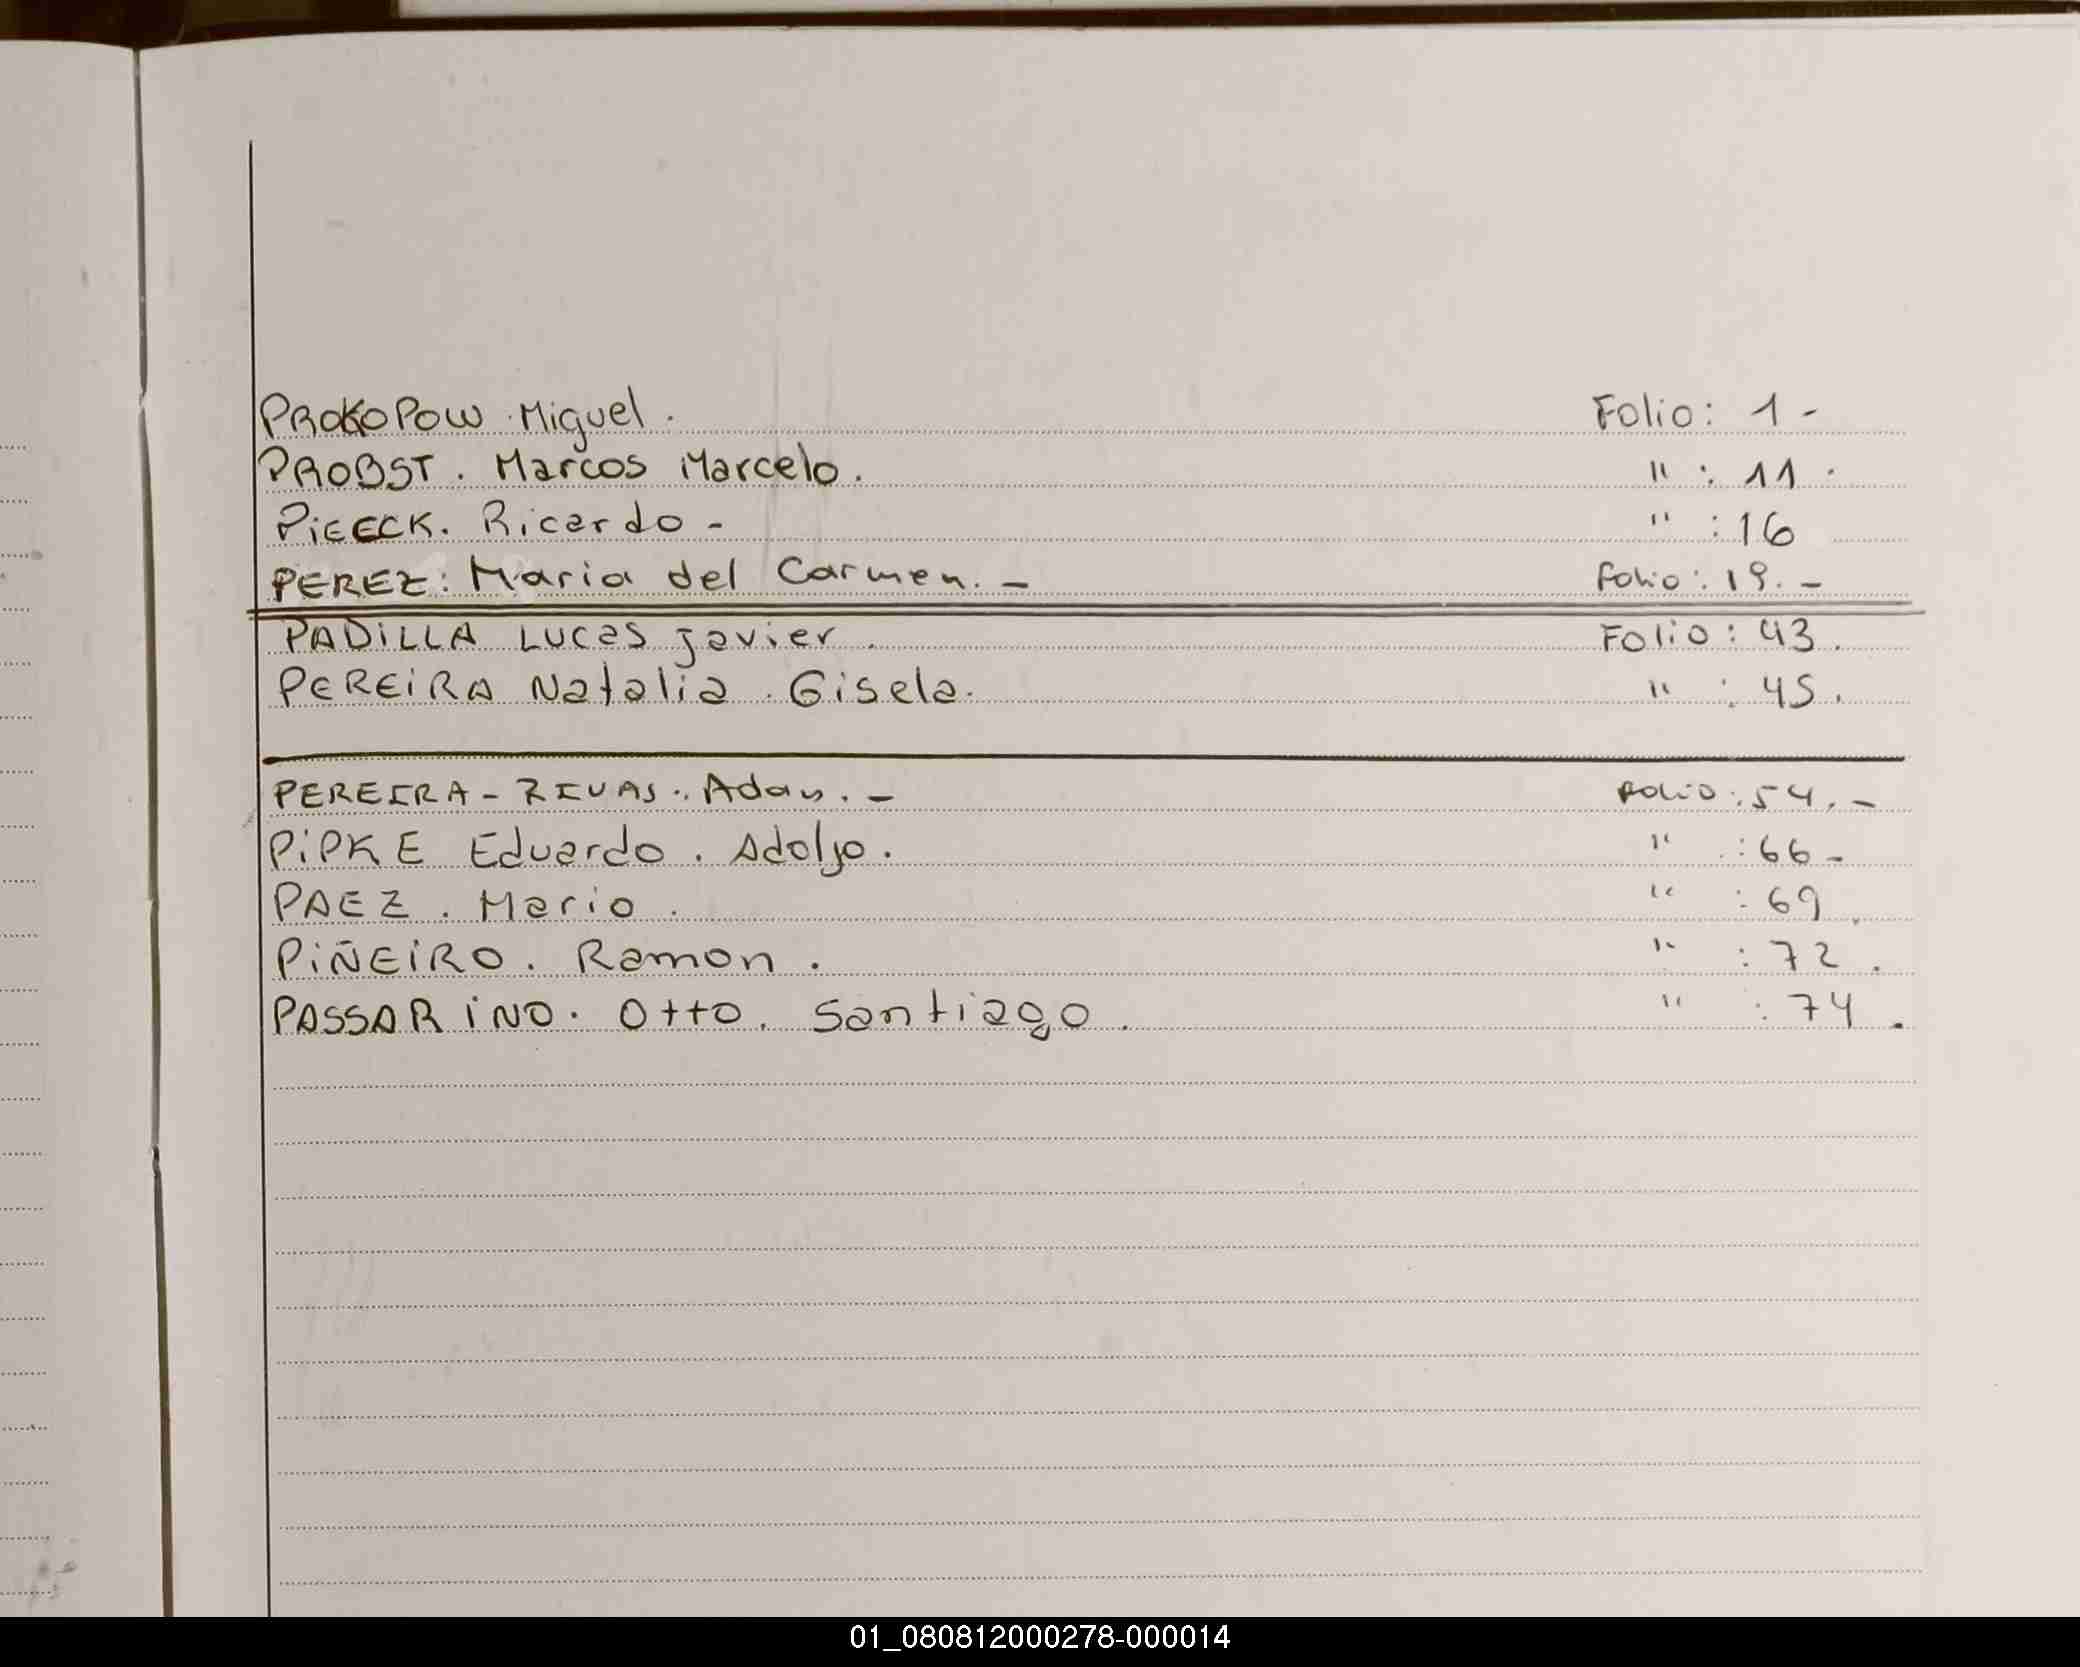 PROKOPOW Miguel. Folio: 1 -
PROBST. Marcos Marcelo. " : 11.
PiEECK. Ricardo - " : 16
PEREZ: Maria del Carmen. - Folio: 19. -
PADiLLA Lucas Javier. Folio: 43.
PEREiRA Natalia. Gisela. " : 45.
PEREIRA - RIVAS. Adan. - Folio: 54. -
PiPKE Eduardo. Adolfo. " : 66 -
PAEZ. Mario. " : 69.
PiÑEiRO. Ramon. " : 72.
PASSARiNO. Otto. Santiago. " : 74.
01_080812000278-000014